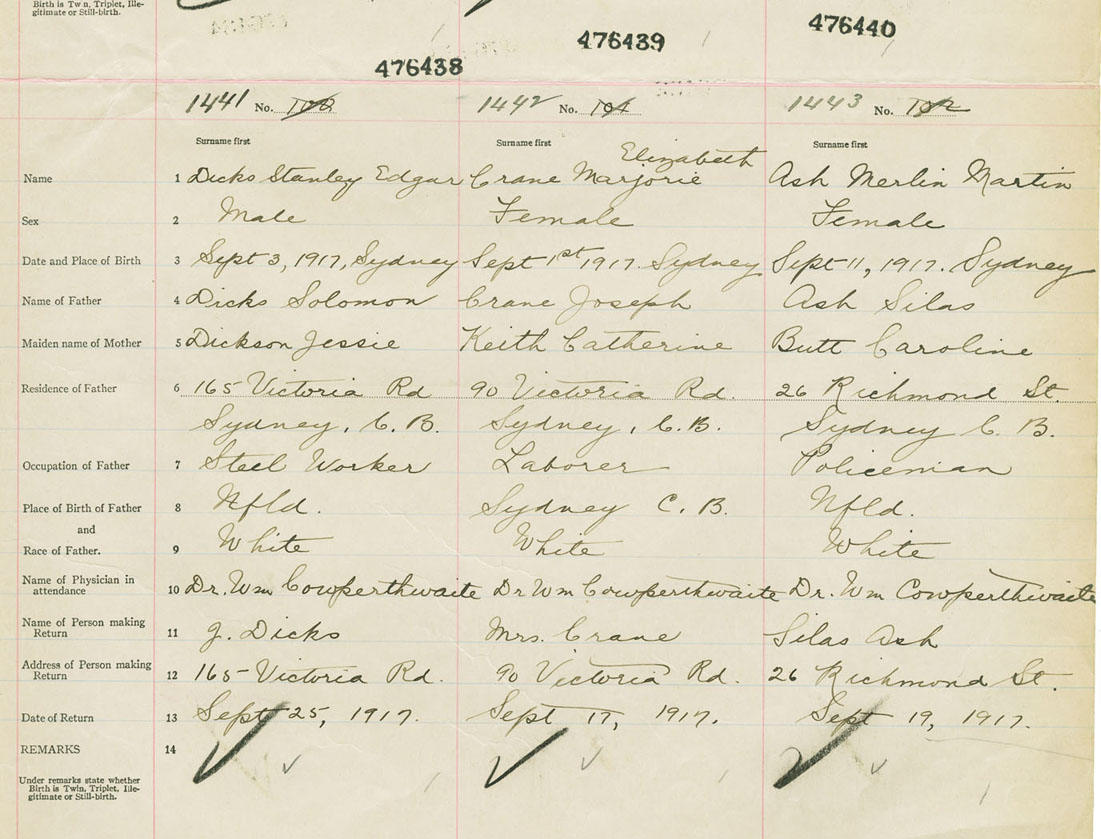 Birth is Twin, Triplet, Ille-
gitimate or Still-birth.
476438 476439 476440
1441 No. 1442 No. 1443 No.
Surname first Surname first Surname first
Elizabeth
Name 1 Dicks Stanley Edgar Crane Marjorie Ash Merlin Martin
Sex 2 Male Female Female
Date and Place of Birth 3 Sept 3, 1917, Sydney Sept 1st 1917. Sydney Sept 11, 1917. Sydney
Name of Father 4 Dicks Solomon Crane Joseph Ash Silas
Maiden name of Mother 5 Dickson Jessie Keith Catherine Butt Caroline
Residence of Father 6 165 Victoria Rd 90 Victoria Rd. 26 Richmond St.
Sydney, C. B. Sydney, C. B. Sydney C. B.
Occupation of Father 7 Steel Worker Laborer Policeman
Place of Birth of Father 8 Nfld. Sydney C. B. Nfld.
and
Race of Father. 9 White White White
Name of Physician in
attendance 10 Dr. Wm Cowperthwaite Dr Wm Cowperthwaite Dr. Wm Cowperthwaite
Name of Person making
Return 11 J. Dicks Mrs. Crane Silas Ash
Address of Person making
Return 12 165 Victoria Rd. 90 Victoria Rd. 26 Richmond St.
Date of Return 13 Sept 25, 1917. Sept 17, 1917. Sept 19, 1917.
REMARKS 14
Under remarks state whether
Birth is Twin, Triplet, Ille-
gitimate or Still-birth.